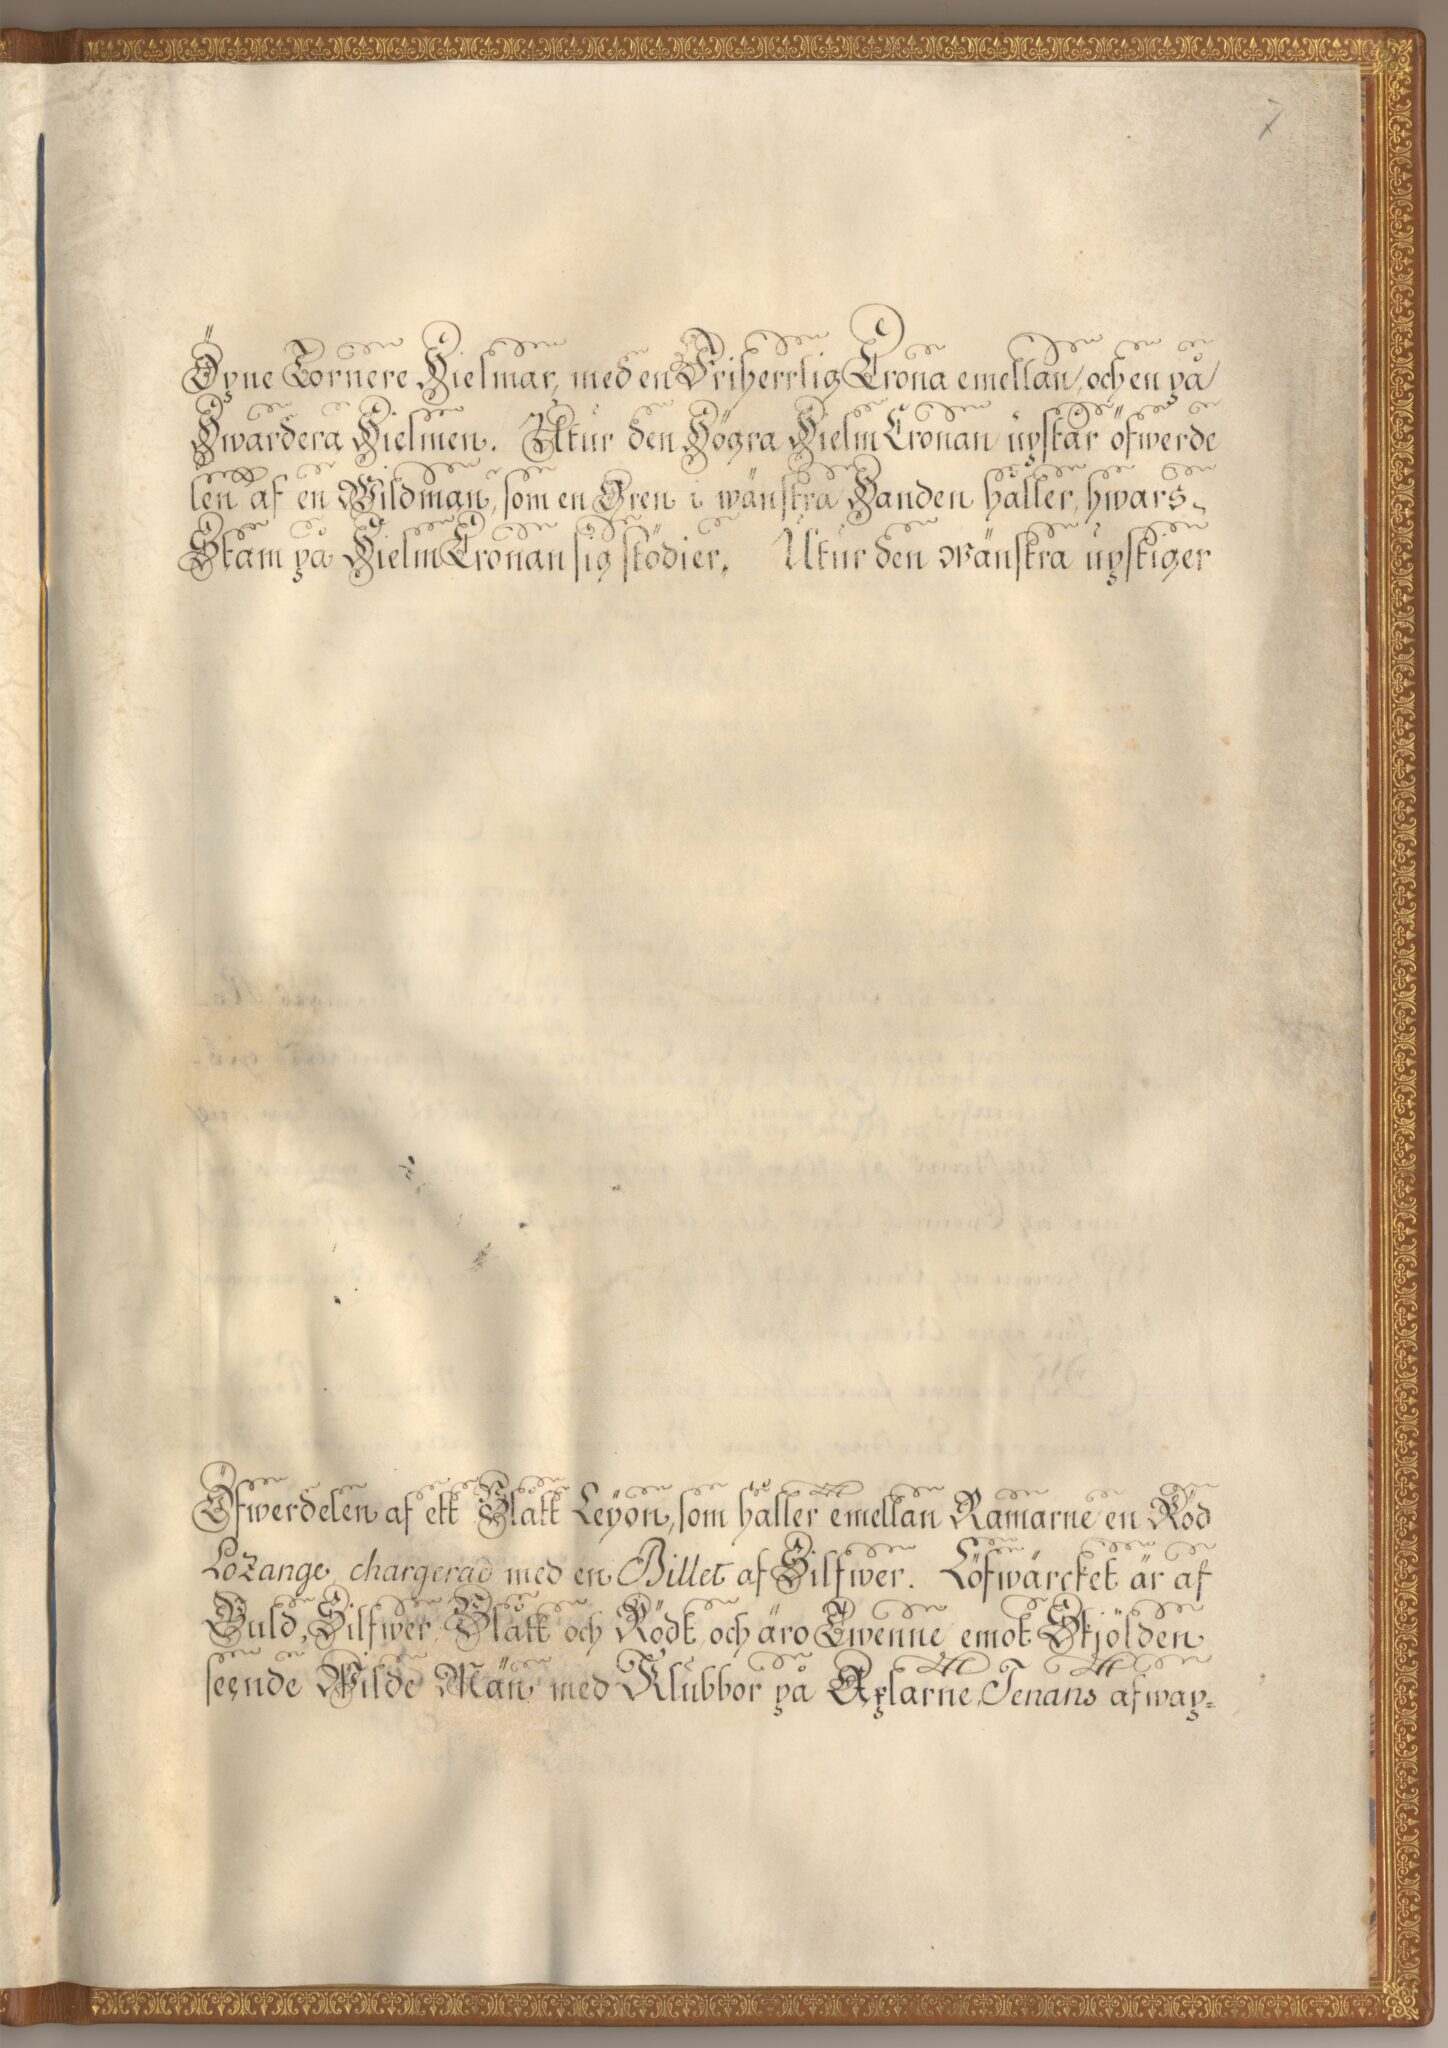 7
Öpne Tornere Hielmar, med en Friherrlig Crona emellan, och en på
Hwardera Hielmen. Utur den Högra Hielm Cronan upstår öfwerde
len af en Wildman, som en Gren i wänstra Handen håller, hwars
Stam på Hielm Cronan sig stödier. Utur den wänstra upstiger
Öfwerdelen af ett Blått Leyon, som håller emellan Ramarne en Röd
Lozange, chargerad med en Billet af Silfwer. Löfwärcket är af
Guld, Silfwer, Blått och Rödt, och äro Twenne emot Skjölden
seende Wilde Män med Klubbor på Axlarne, Tenans af wap=